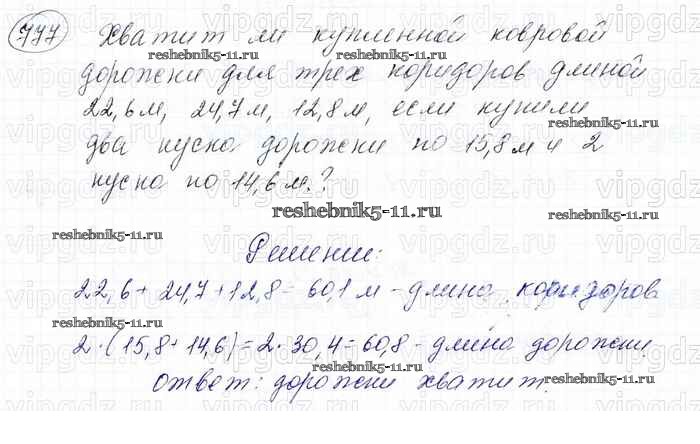 777 Хватит ли купленной ковровой
reshebnik5-11.ru reshebnik5-11.ru
дорожки для трех коридоров длиной
22,6м, 24,7м, 12,8м, если купили
reshebnik5-11.ru
два куска дорожки по 15,8м и 2
куска по 14,6м.?
reshebnik5-11.ru
reshebnik5-11.ru
reshebnik5-11.ru
Решение:
22,6+24,7+12,8=60,1м - длина коридоров
reshebnik5-11.ru
2·(15,8+14,6)=2·30,4=60,8 - длина дорожки
ответ: дорожки хватит.
reshebnik5-11.ru
vipgdz.ru